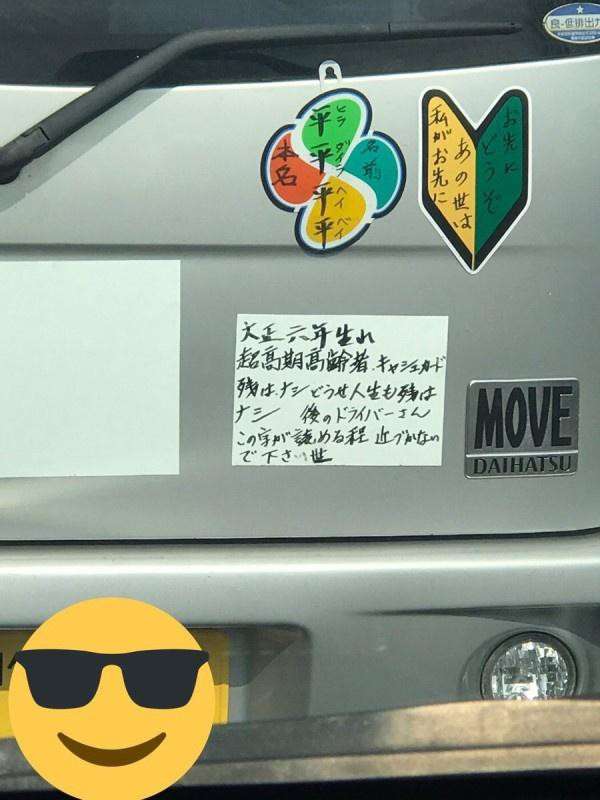 良-低排出ガ
名前
ヒラ ダイラ ヘイ ベイ
平平平平
本名
お先に
どうぞ
あの世は
私がお先に
大正六年生れ
超高期高齢者.キャシュカード
残は.ナシどうせ人生も残は
ナシ 後のドライバーさん
この字が読める程 近づかない
で下さい世
MOVE
DAIHATSU